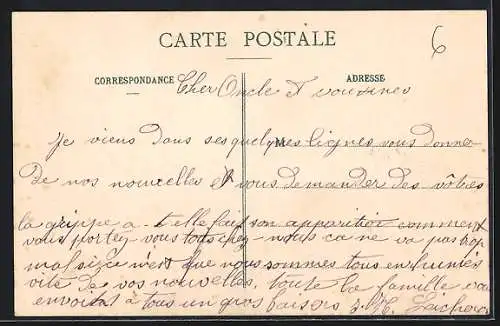 CARTE POSTALE
6
CORRESPONDANCE
ADRESSE
Cher Oncle et cousines
M
je viens dans ses quelques lignes vous donner
de nos nouvelles et vous demander des vôtres
la grippe a-t-elle fait son apparition comment
vous portez-vous tous chez-nous ca ne va pas trop
mal si ce n'est que nous sommes tous enrhumés
vite de vos nouvelles. toute la famille vous
envoient à tous un gros baisers